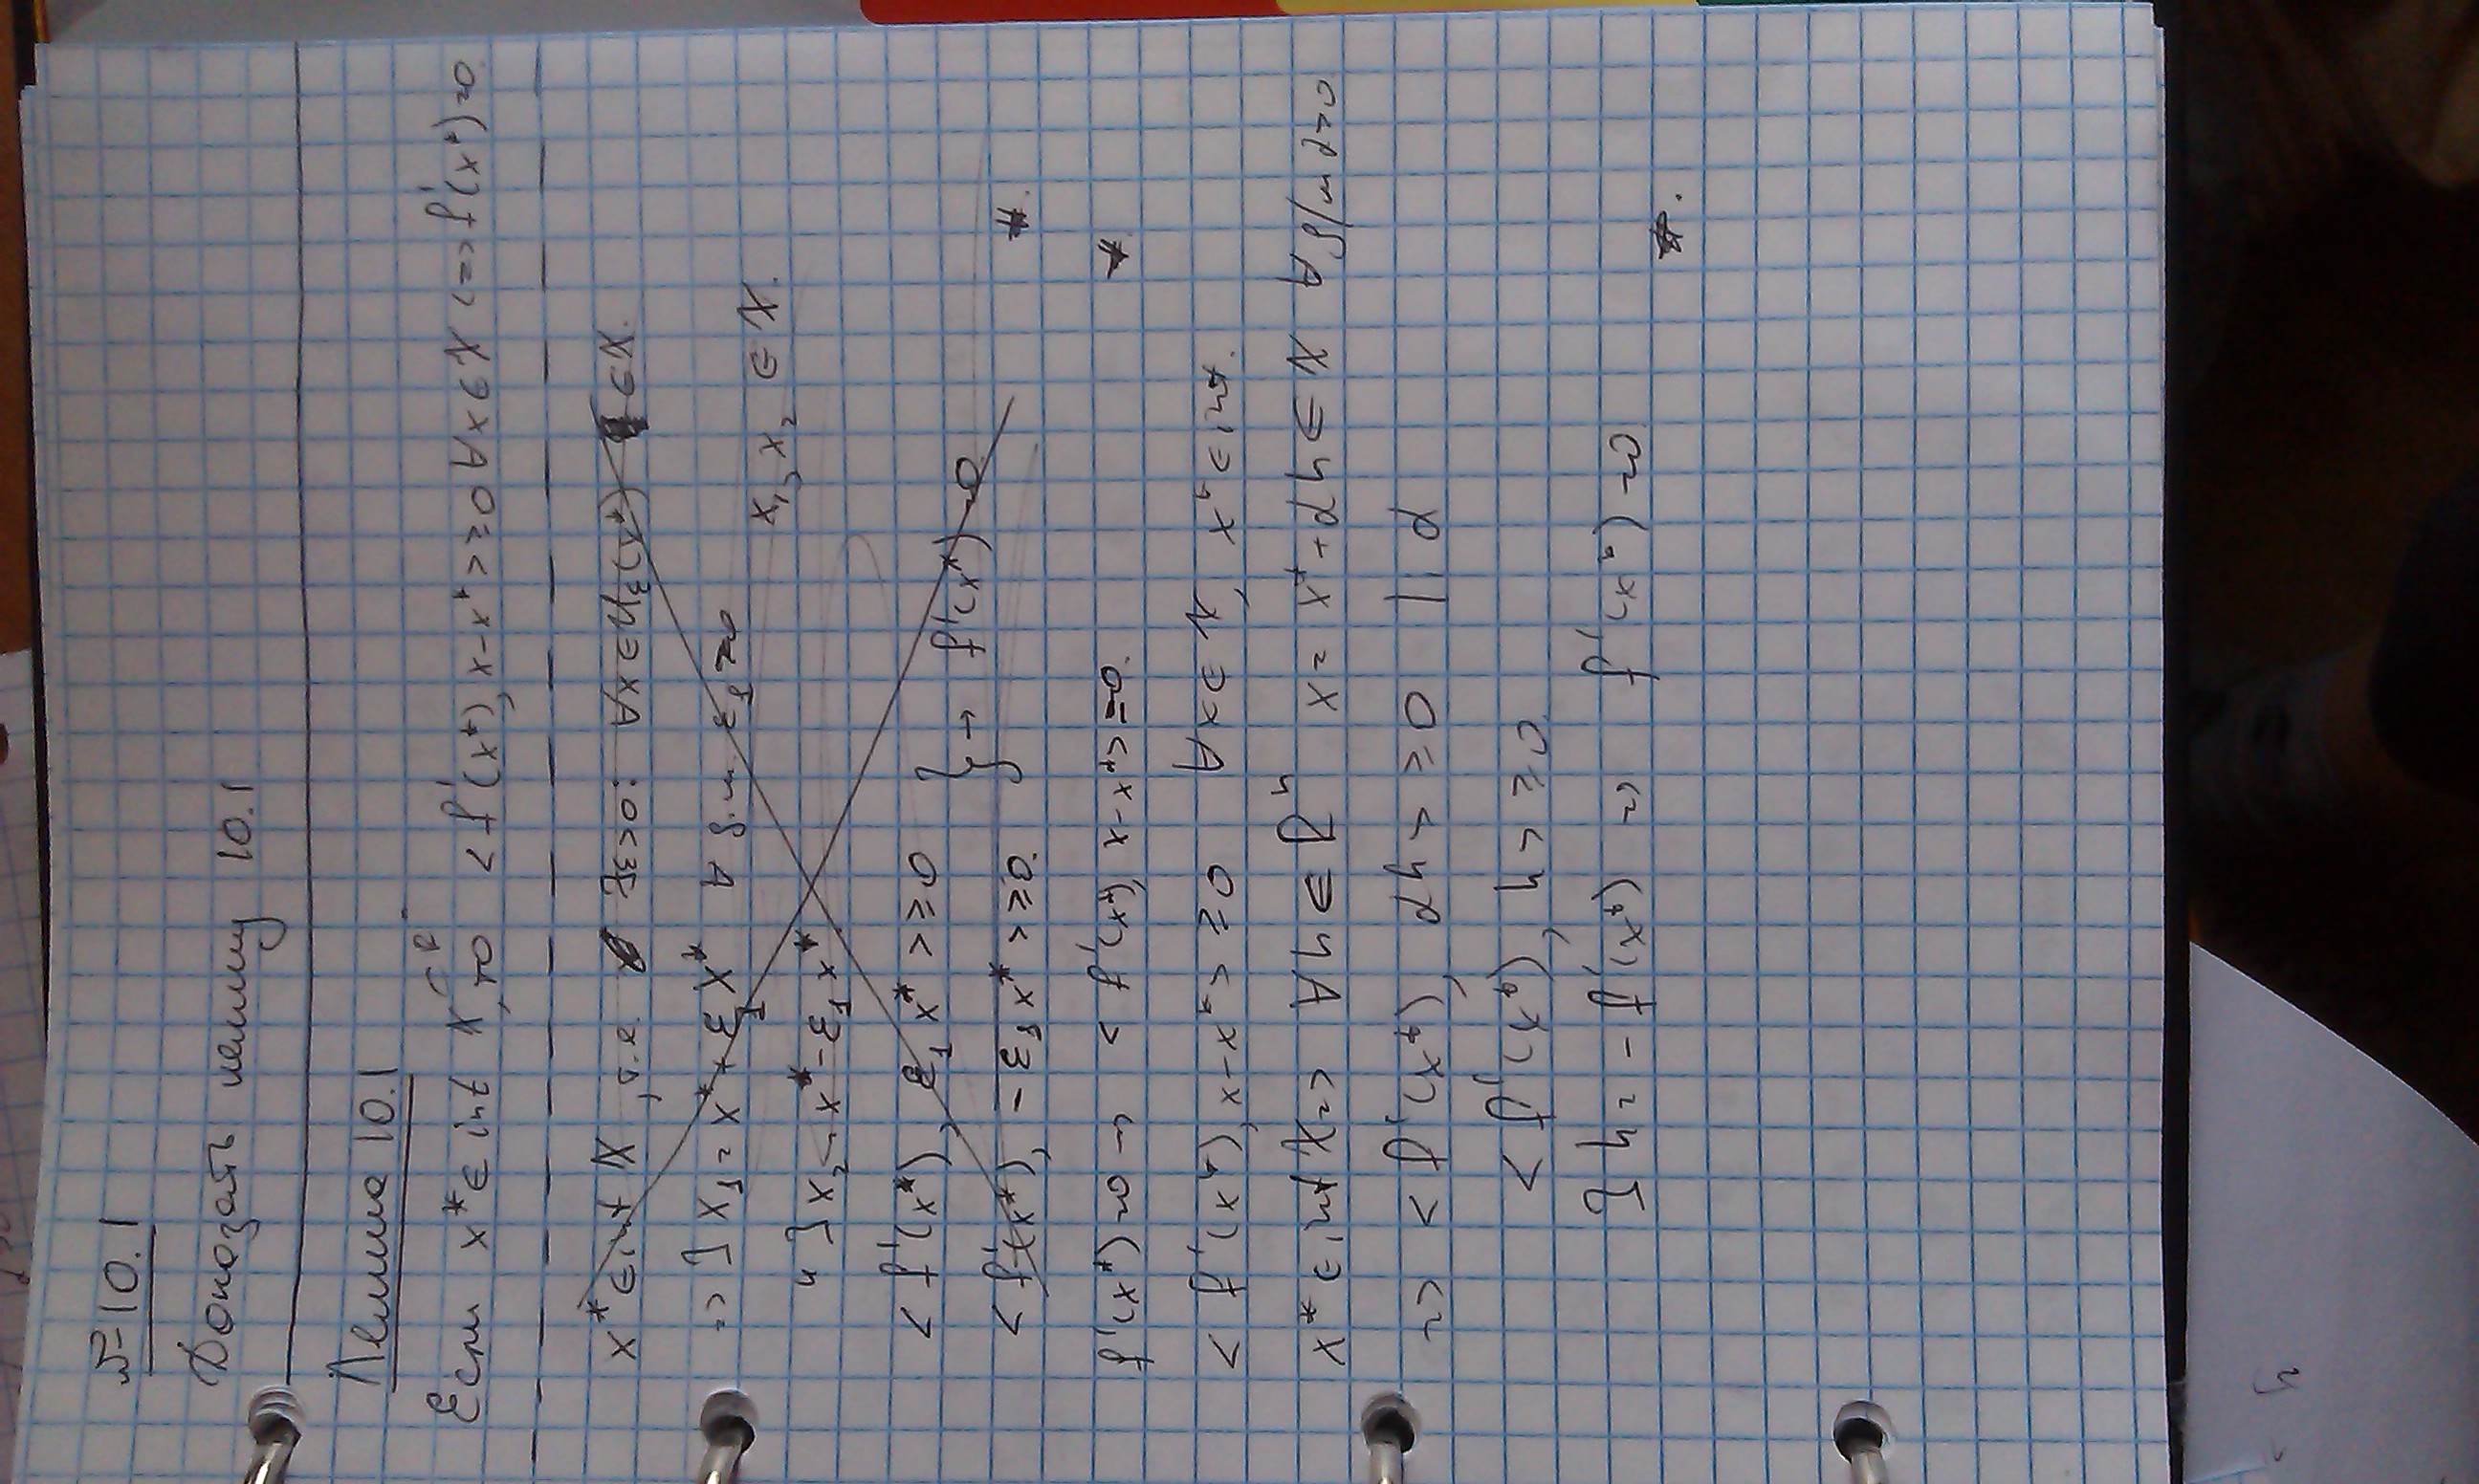 №10.1
Доказать лемму 10.1
Лемма 10.1
Если x* ∈ int X, то <f'(x*), x-x*> ≥0 ∀x∈X <=> f'(x*)=0.
x* ∈ int X, т.е. ∃ε>0: ∀x∈U_ε(x*) ∈X.
=> ] x₁ = x* + ε₁x* ∀ б.м ε₁≥0
и ] x₂ = x* - ε₁x* x₁, x₂ ∈ X.
<f'(x*), ε₁x*> ≥0
<f'(x*), -ε₁x*> ≥0. } → f'(x*)=0. #.
f'(x*)=0 → <f'(x*), x-x*> =0. #
<f'(x*), x-x*> ≥0 ∀x∈X, x*∈int.
x* ∈ int X => ∀h∈Rⁿ x = x*+αh ∈ X ∀ б/м α>0
=> <f'(x*), αh> ≥0 | : α
<f'(x*), h> ≥0
] h = -f'(x*) => f'(x*)=0 #.